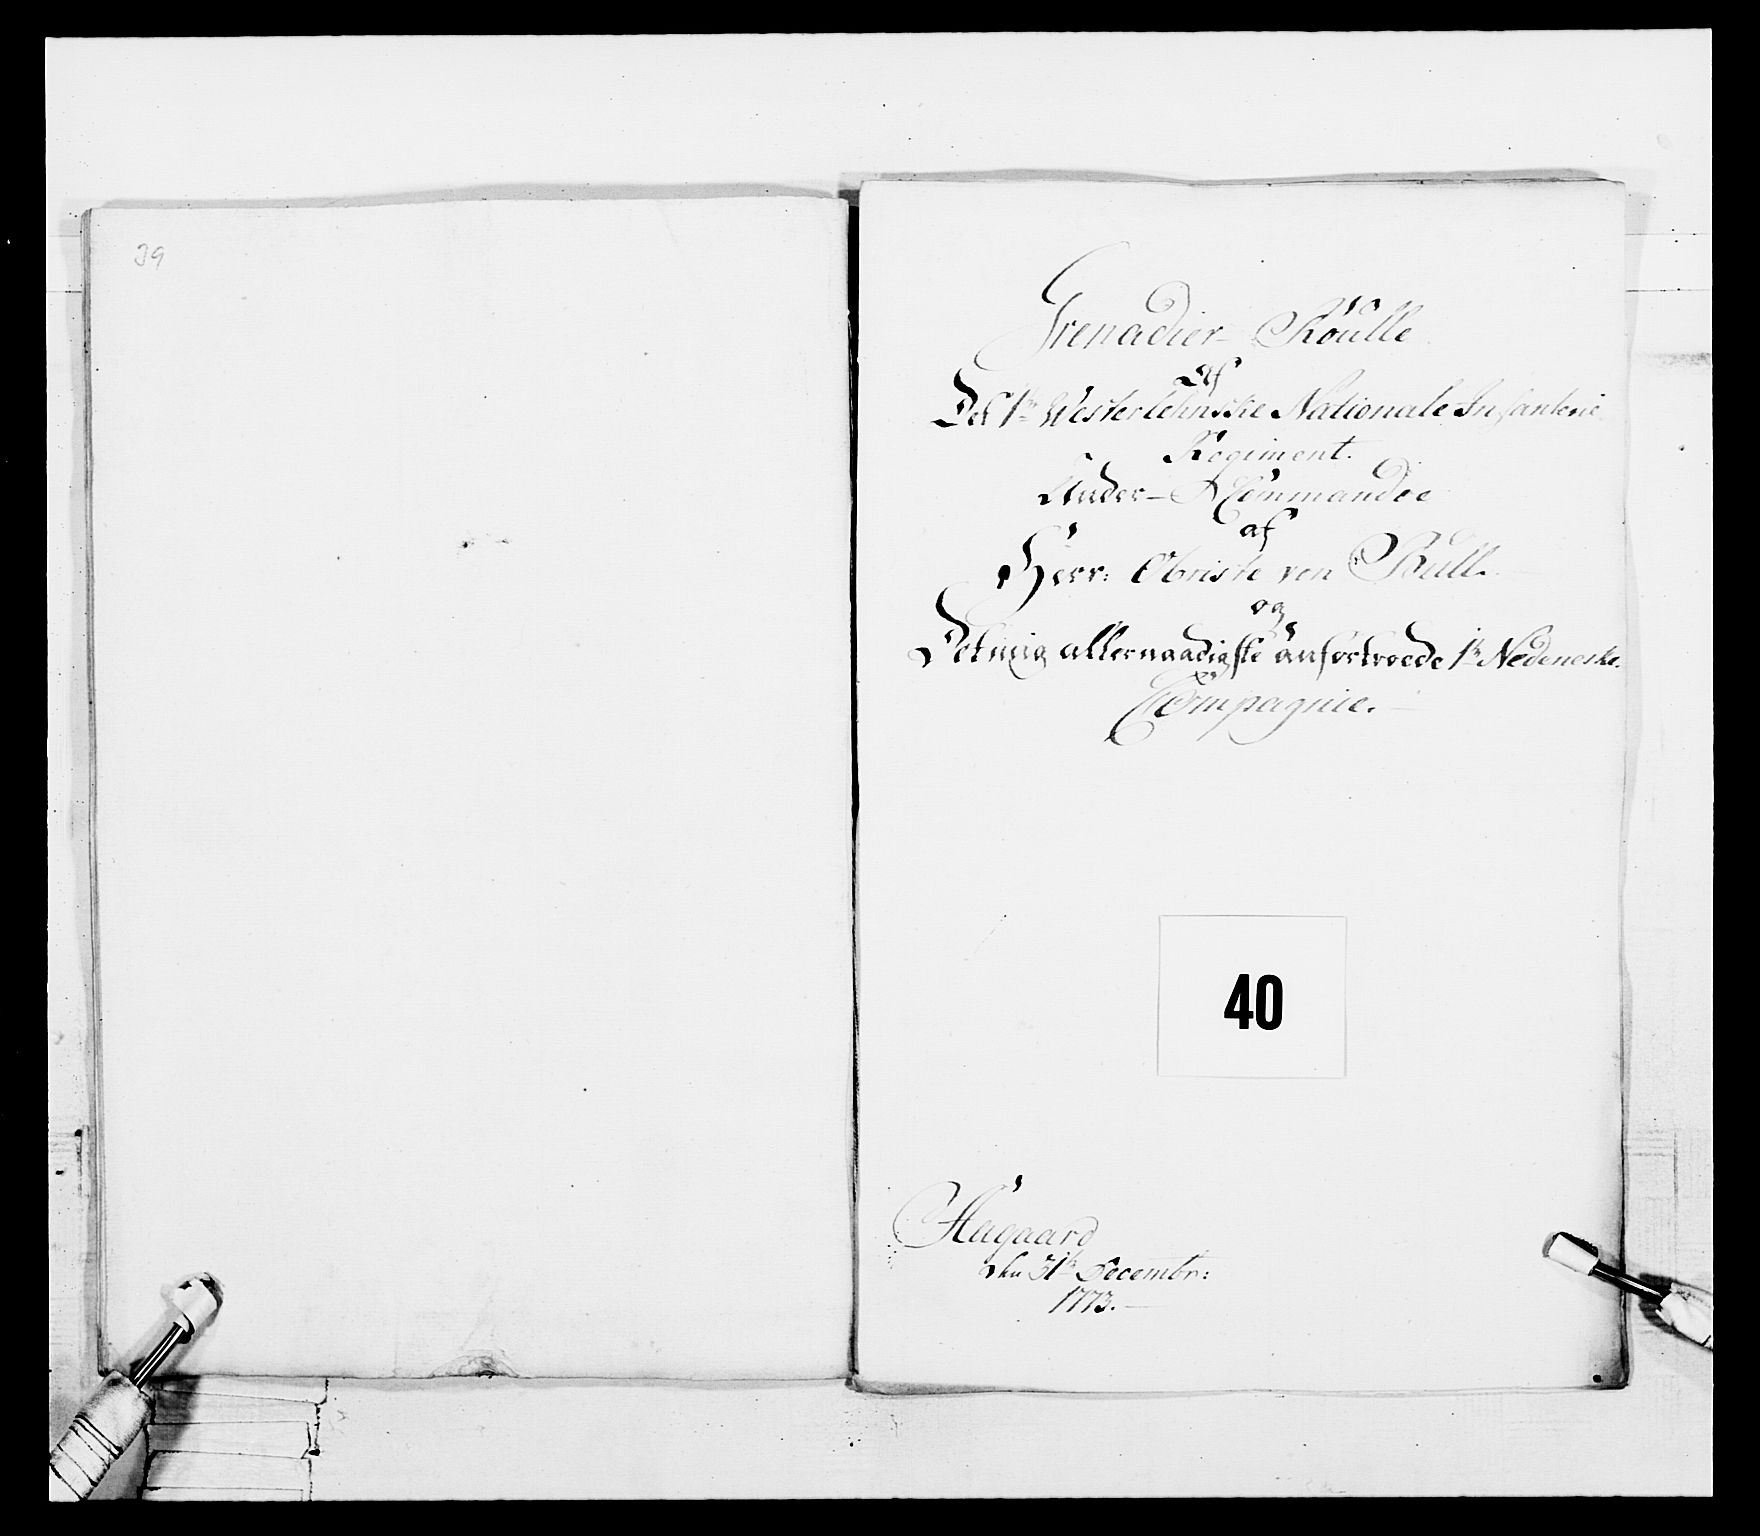 39
Grenadier-Roulle
Af
Det 1te Westerlehnske Nationale Infanterie
Regiment.
Under-Commandoe
af
Herr: Obriste von Bull.
og
Det mig allernaadigste anfortroede 1te Nedeneske
Compagnie.
40
Haagaard
den 31te Decembr:
1773.